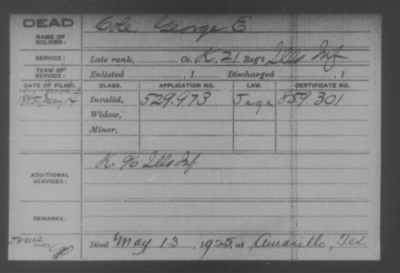 DEAD
NAME OF SOLDIER: Cole George E
SERVICE: Late rank, Co. K, 21 Reg't Ills Inf
TERM OF SERVICE: Enlisted , 1 Discharged , 1
DATE OF FILING. CLASS. APPLICATION NO. LAW. CERTIFICATE NO.
1885, 14 Invalid, 529.473 859.301
Widow,
Minor,
ADDITIONAL SERVICES: K 96 Ills Inf
REMARKS:
Died May 13, 1925, at Amarillo, Tex